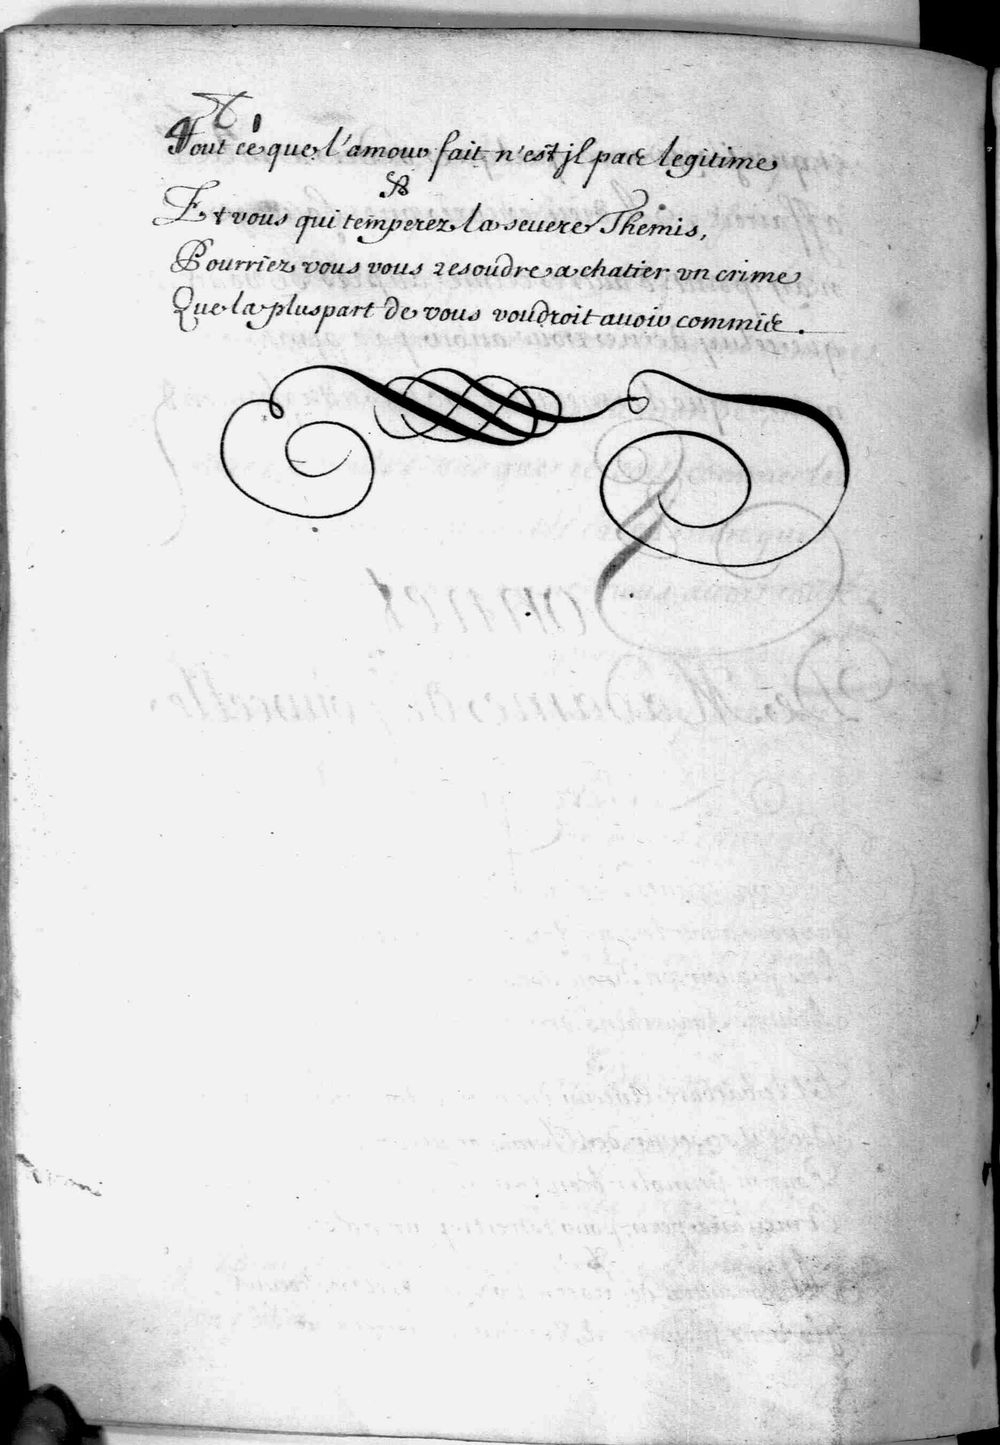 Tout ce que l'amour fait n'est jl pas legitime
Et vous qui temperez la seuere Themis,
Pourriez vous vous resoudre a chatier vn crime
Que la pluspart de vous voudroit auoir commis.